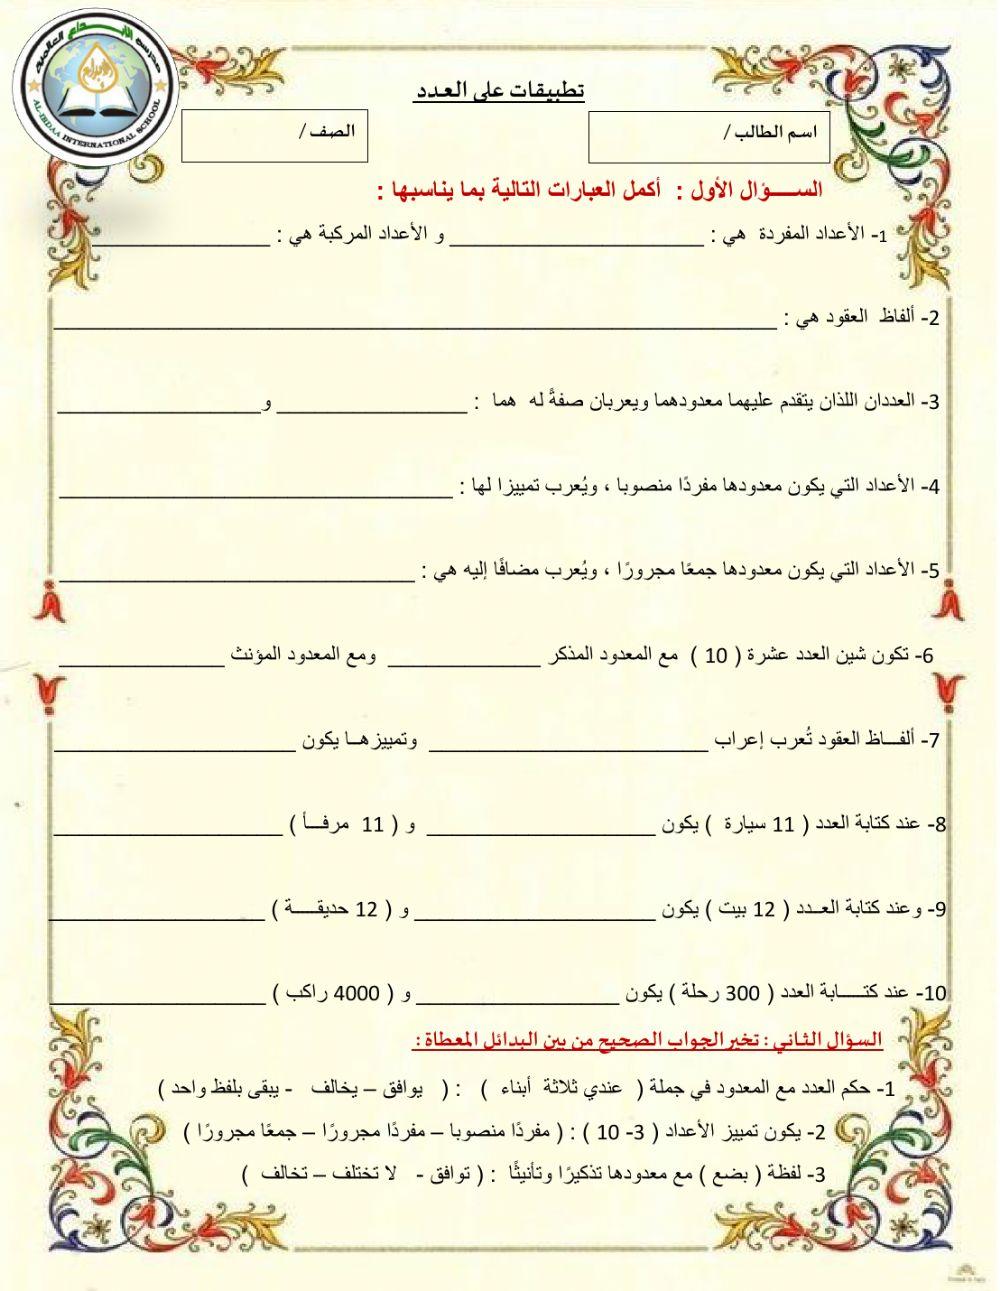 مدرسة الإبداع العالمية
الإبداع
AL-IBDAA INTERNATIONAL SCHOOL
تطبيقات على العدد
اسم الطالب /
الصف /
الســـؤال الأول : أكمل العبارات التالية بما يناسبها :
1- الأعداد المفردة هي : ______________________ و الأعداد المركبة هي : ________________
2- ألفاظ العقود هي : ________________________________________________________________
3- العددان اللذان يتقدم عليهما معدودهما ويعربان صفةً له هما : _________________ و__________________
4- الأعداد التي يكون معدودها مفردًا منصوبا ، ويُعرب تمييزا لها : ___________________________________
5- الأعداد التي يكون معدودها جمعًا مجرورًا ، ويُعرب مضافًا إليه هي : ________________________________
6- تكون شين العدد عشرة ( 10 ) مع المعدود المذكر ______________ ومع المعدود المؤنث _______________
7- ألفـــاظ العقود تُعرب إعراب _________________________ وتمييزهــا يكون ______________________
8- عند كتابة العدد ( 11 سيارة ) يكون _____________________ و ( 11 مرفـــأ ) _____________________
9- وعند كتابة العــدد ( 12 بيت ) يكون ______________________ و ( 12 حديقــــة ) ____________________
10- عند كتـــــابة العدد ( 300 رحلة ) يكون ___________________ و ( 4000 راكب ) ____________________
السؤال الثاني : تخير الجواب الصحيح من بين البدائل المعطاة :
1- حكم العدد مع المعدود في جملة ( عندي ثلاثة أبناء ) : ( يوافق – يخالف - يبقى بلفظ واحد )
2- يكون تمييز الأعداد ( 3- 10 ) : ( مفردًا منصوبا – مفردًا مجرورًا – جمعًا مجرورًا )
3- لفظة ( بضع ) مع معدودها تذكيرًا وتأنيثًا : ( توافق - لا تختلف – تخالف )